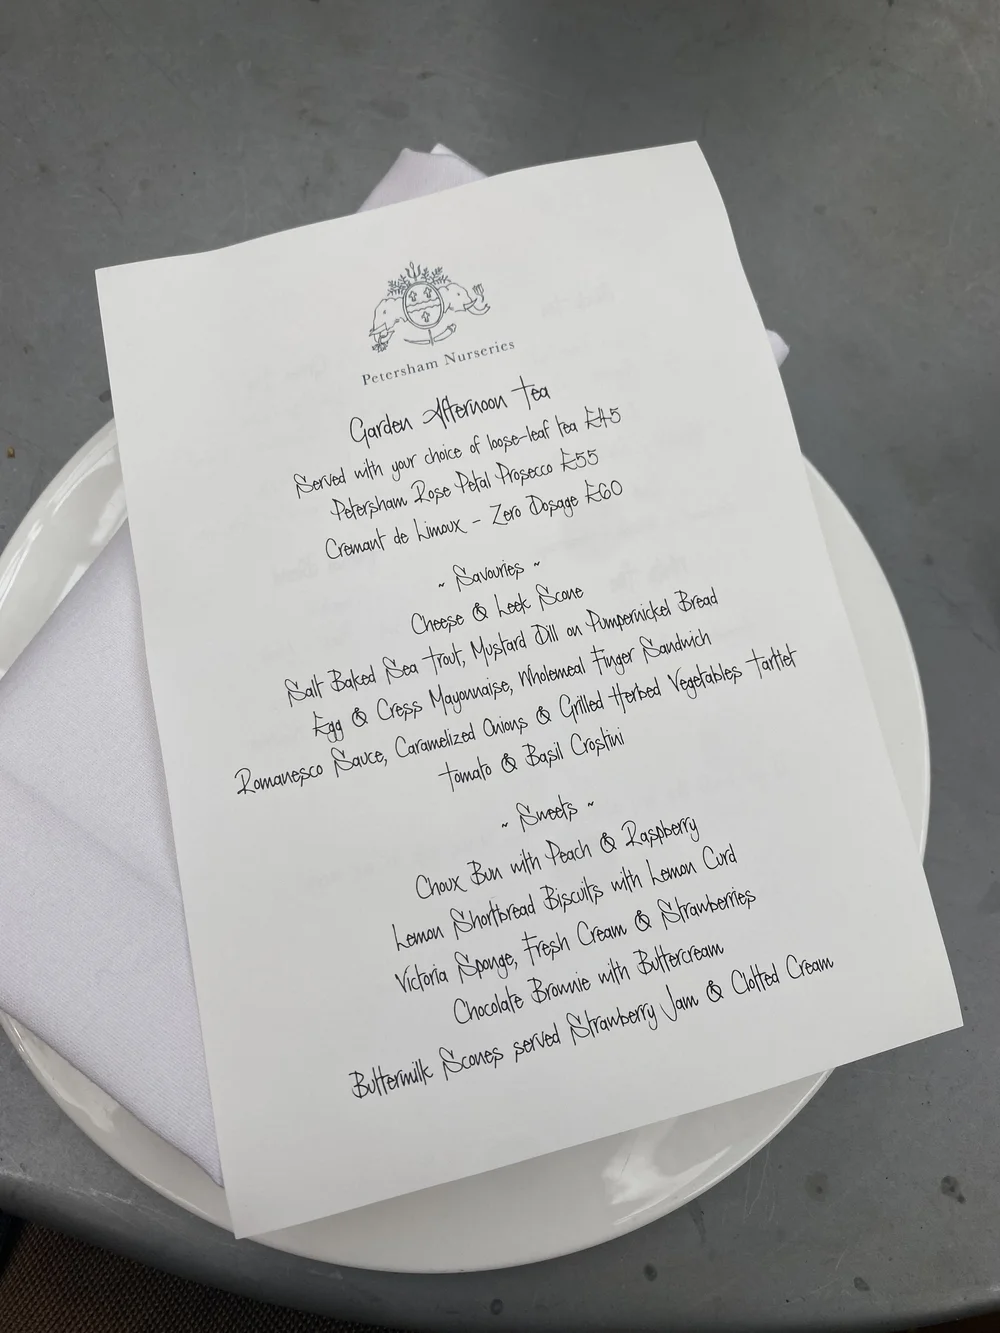 Petersham Nurseries
Garden Afternoon Tea
Served with your choice of loose-leaf tea £45
Petersham Rose Petal Prosecco £55
Cremant de Limoux - Zero Dosage £60
~ Savouries ~
Cheese & Leek Scone
Salt Baked Sea Trout, Mustard Dill on Pumpernickel Bread
Egg & Cress Mayonnaise, Wholemeal Finger Sandwich
Romanesco Sauce, Caramelized Onions & Grilled Herbed Vegetables Tartlet
Tomato & Basil Crostini
~ Sweets ~
Choux Bun with Peach & Raspberry
Lemon Shortbread Biscuits with Lemon Curd
Victoria Sponge, Fresh Cream & Strawberries
Chocolate Brownie with Buttercream
Buttermilk Scones served Strawberry Jam & Clotted Cream